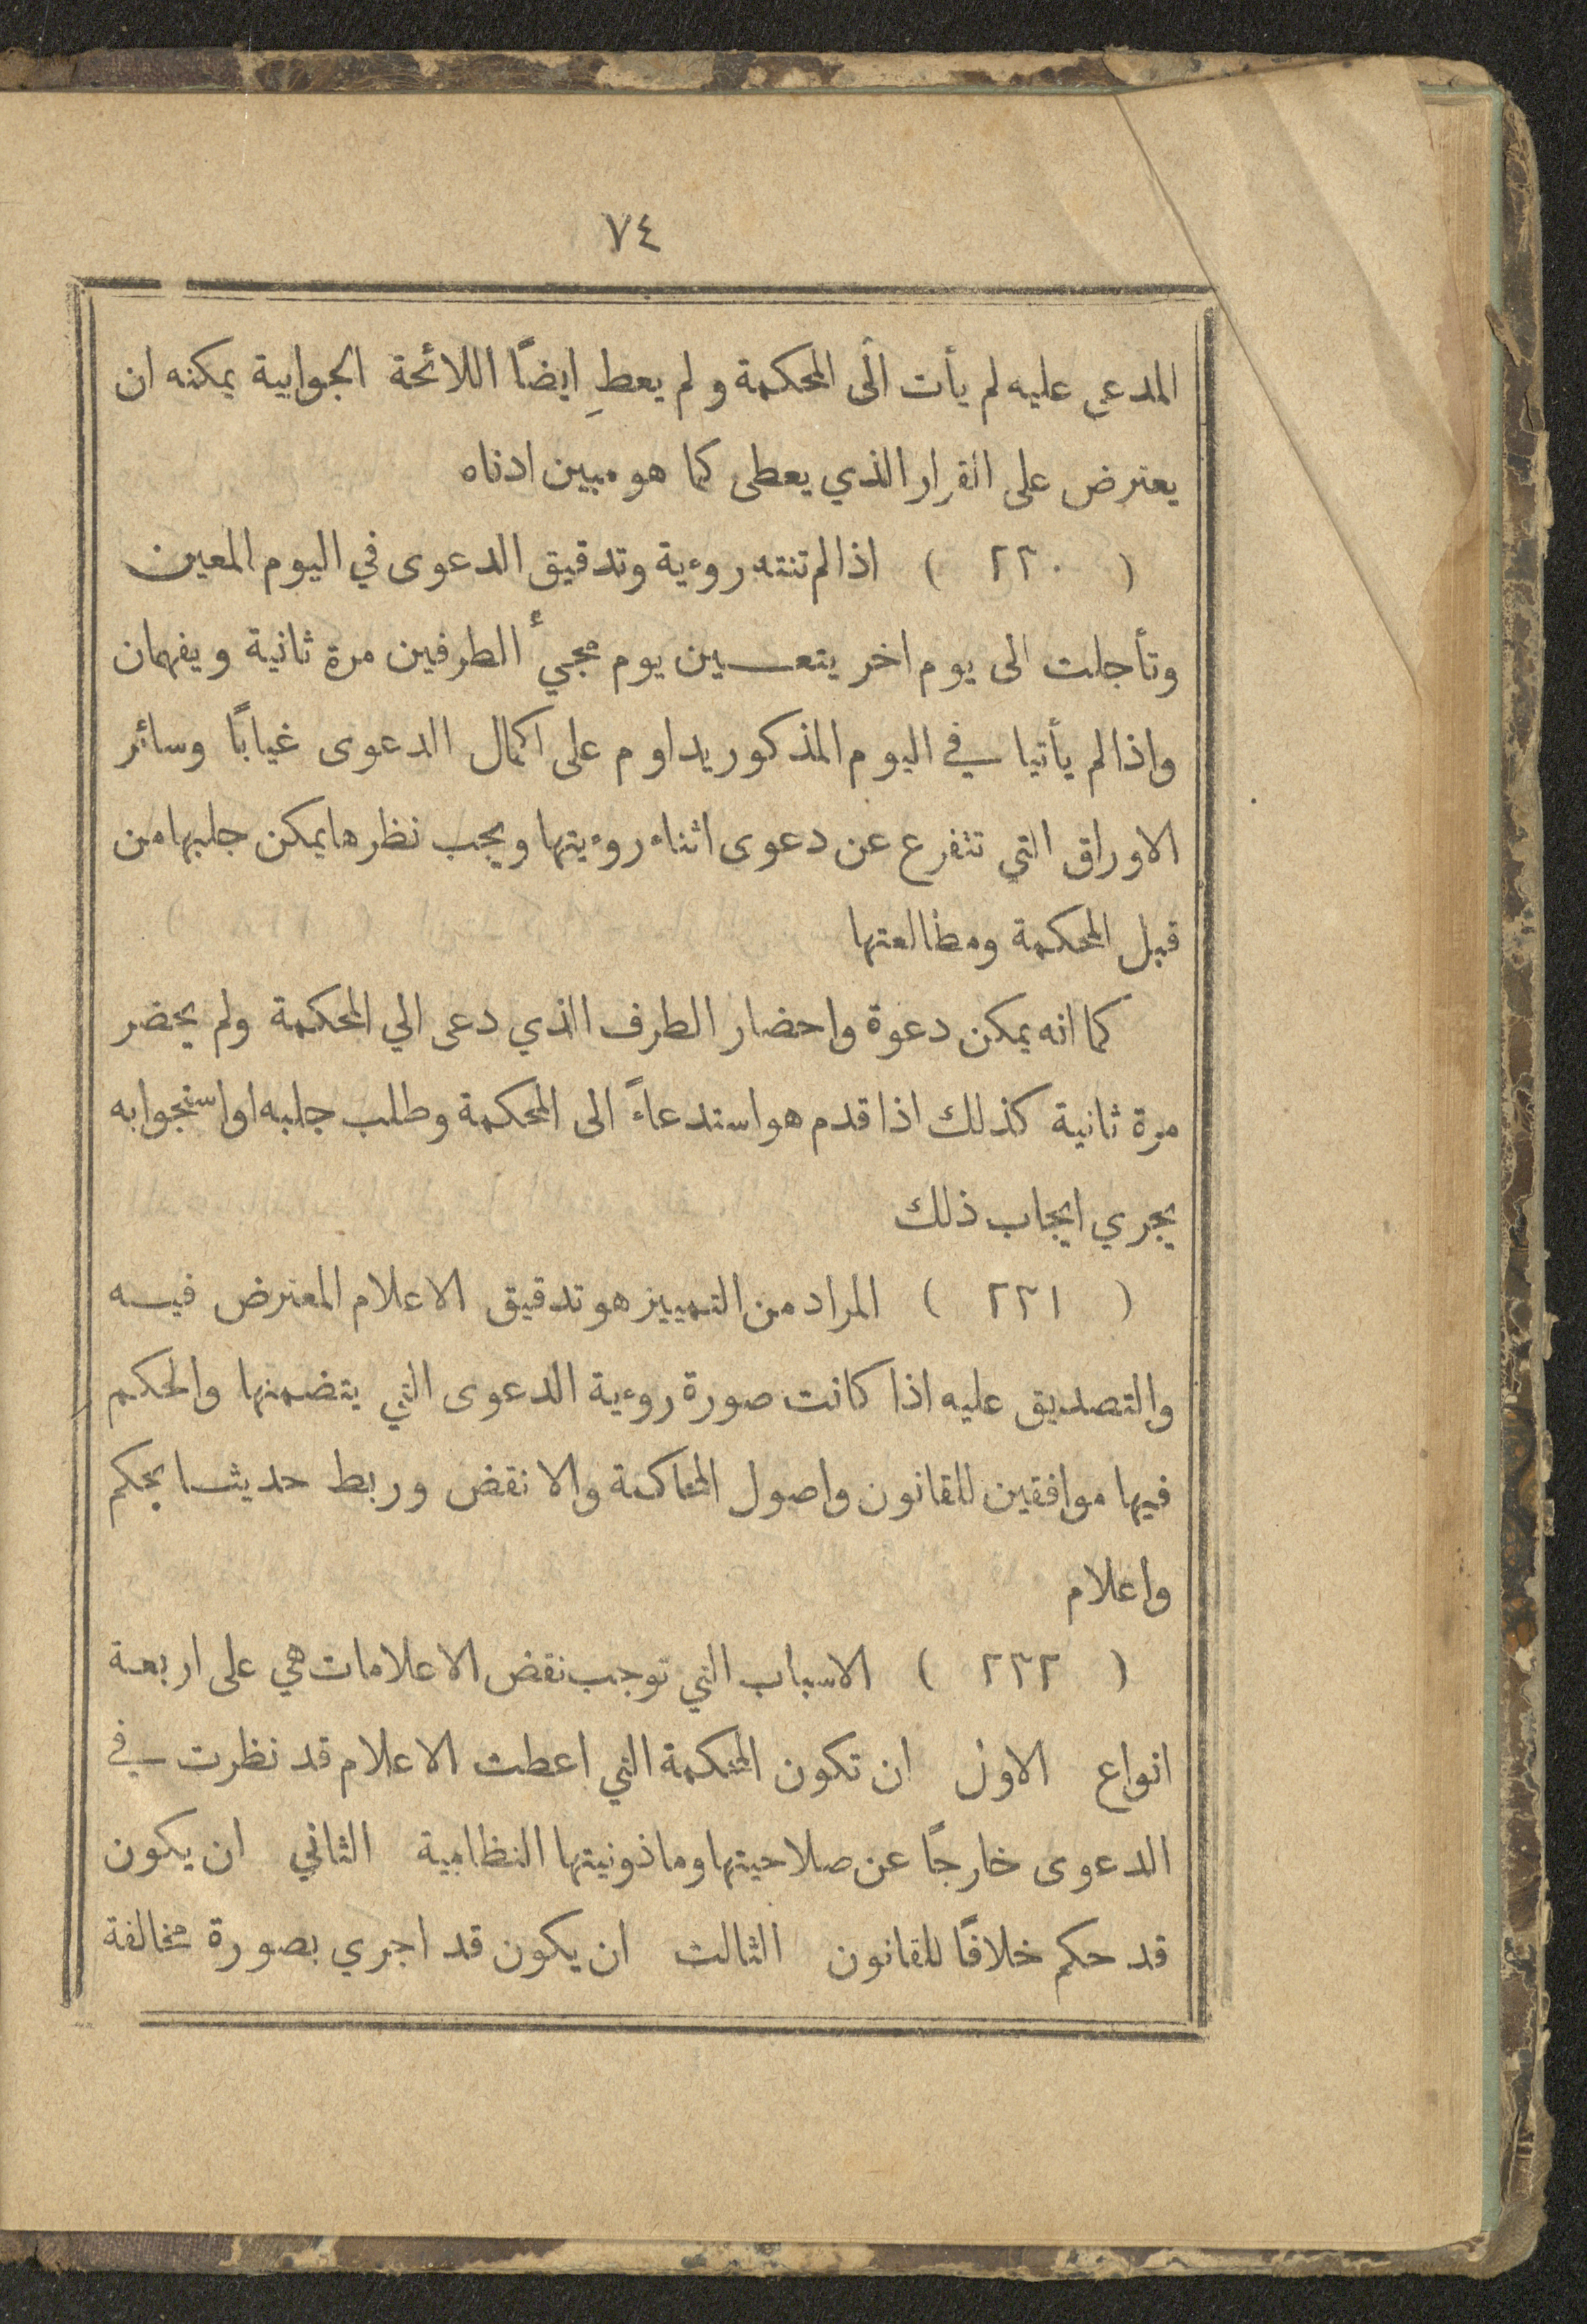 ٧٤
المدعى عليه لم يأت الى المحكمة ولم يعطِ ايضًا اللائحة الجوابية يمكنه ان
يعترض على القرار الذي يعطى كما هو مبين ادناه
( ٢٢٠ ) اذا لم تنته روءية وتدقيق الدعوى في اليوم المعين
وتأجلت الى يوم اخر يتعين يوم مجيء الطرفين مرة ثانية ويفهمان
واذا لم يأتيا في اليوم المذكور يداوم على اكمال الدعوى غيابًا وسائر
الاوراق التي تتفرع عن دعوى اثناء روءيتها ويجب نظرها يمكن جلبها من
قبل المحكمة ومطالعتها
كما انه يمكن دعوة واحضار الطرف الذي دعى الي المحكمة ولم يحضر
مرة ثانية كذلك اذا قدم هو استدعاءً الى المحكمة وطلب جلبه او استجوابه
يجري ايجاب ذلك
( ٢٢١ ) المراد من التمييز هو تدقيق الاعلام المعترض فيه
والتصديق عليه اذا كانت صورة روءية الدعوى التي يتضمنها والحكم
فيها موافقين للقانون واصول المحاكمة والا نقض وربط حديثا بحكم
واعلام
( ٢٢٢ ) الاسباب التي توجب نقض الاعلامات هي على اربعة
انواع الاول ان تكون المحكمة التي اعطت الاعلام قد نظرت في
الدعوى خارجًا عن صلاحيتها وماذونيتها النظامية الثاني ان يكون
قد حكم خلافًا للقانون الثالث ان يكون قد اجري بصورة مخالفة